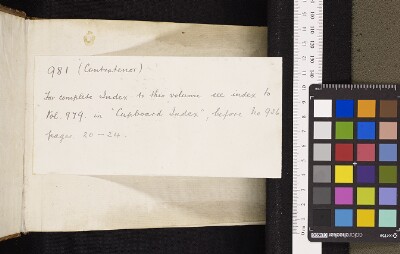 981 (Containers)
For complete Index to this volume see index to
Vol. 979. in "Cupboard Index", before No 926
pages 20 – 24.